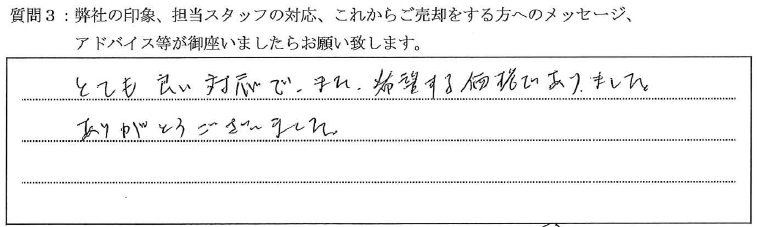 質問３：弊社の印象、担当スタッフの対応、これからご売却をする方へのメッセージ、
アドバイス等が御座いましたらお願い致します。
とても良い対応で、また、希望する価格でありました。
ありがとうございました。